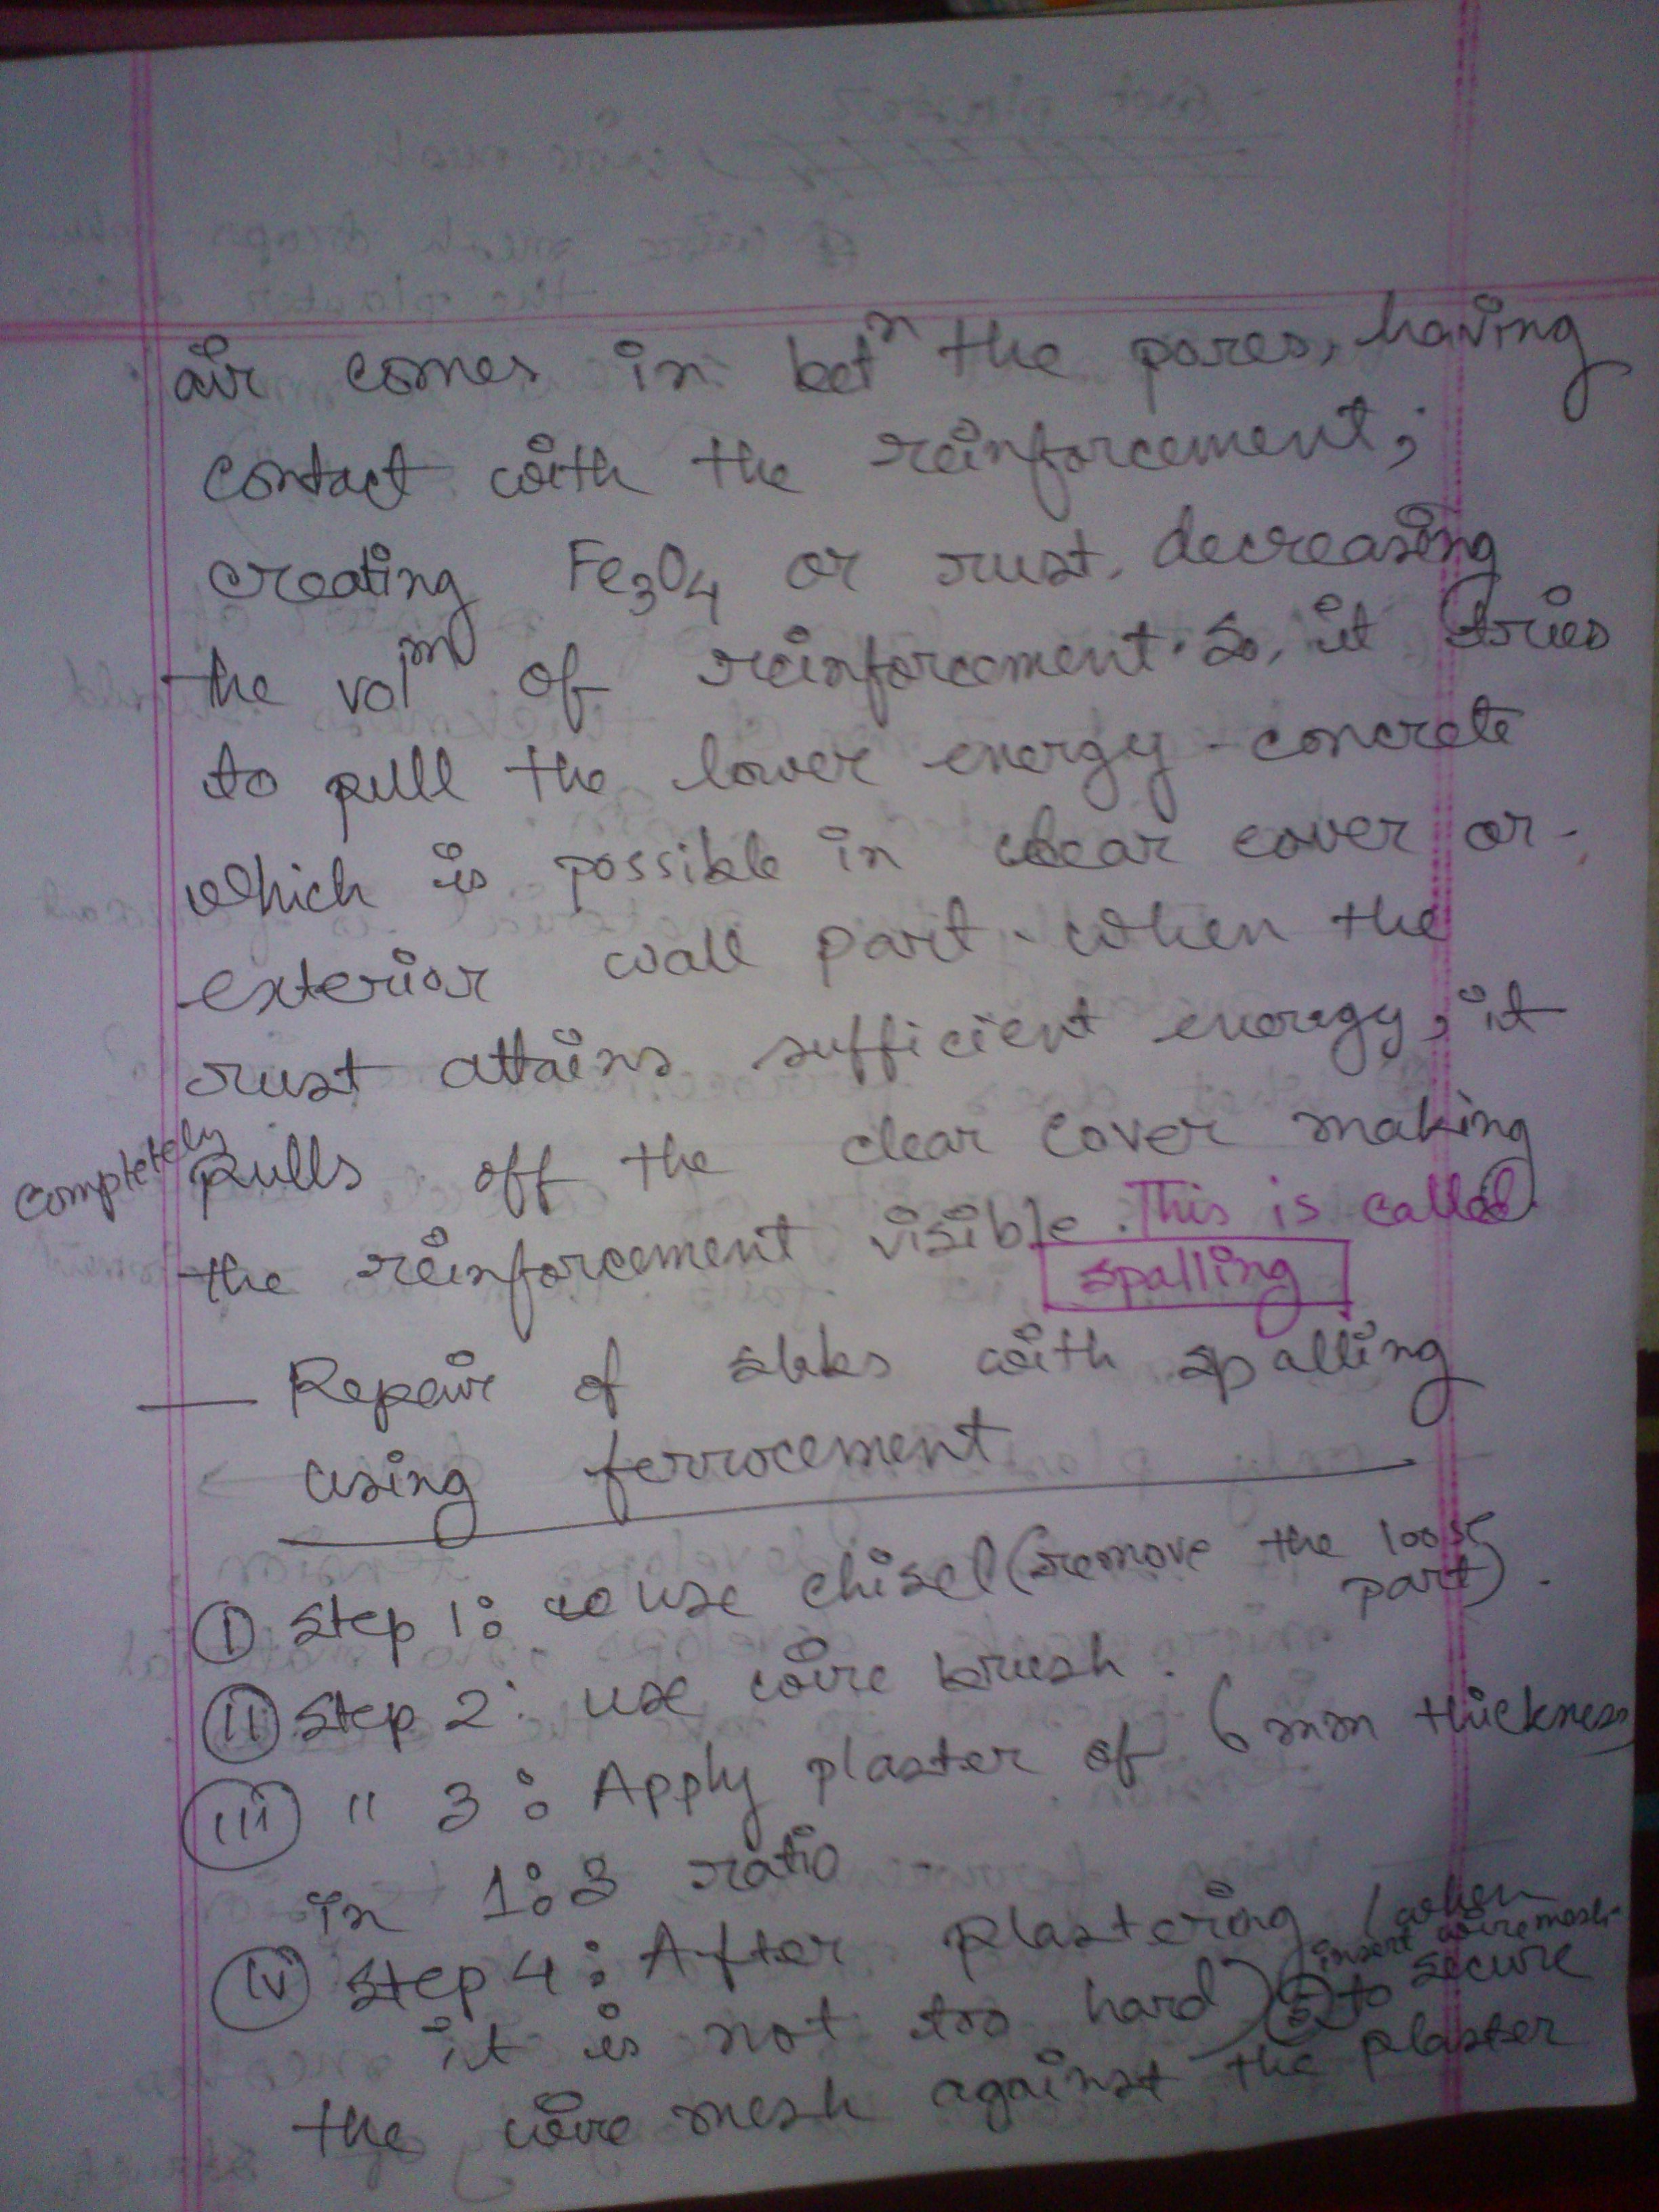 air comes in betⁿ the pores, having
contact with the reinforcement,
creating Fe₃O₄ or rust. decreasing
the volᵐ of reinforcement. So, it tries
to pull the lower energy - concrete
which is possible in clear cover or
exterior wall part. when the
rust attains sufficient energy, it
completely pulls off the clear cover making
the reinforcement visible. This is called
spalling
Repair of slabs with spalling
using ferrocement
(i) Step 1: use chisel (remove the loose
part).
(ii) Step 2: use wire brush.
(iii) " 3: Apply plaster of 6 mm thickness
in 1:3 ratio
(iv) Step 4: After plastering (when
insert wiremesh
it is not too hard) to secure
the wire mesh against the plaster